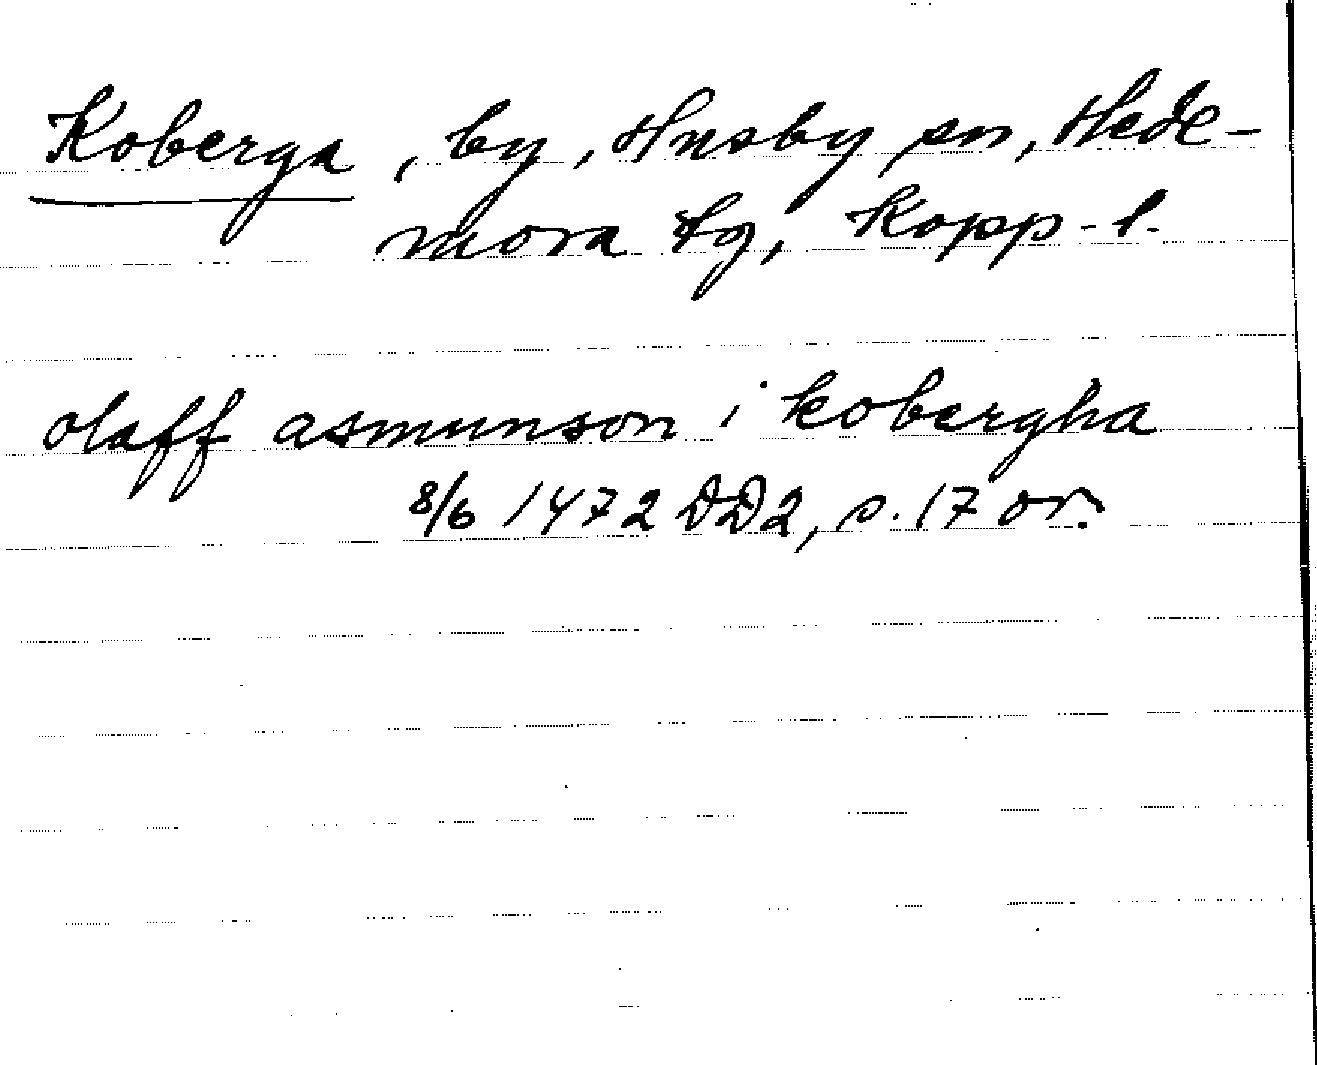 Koberga, by, Husby sn, Hede-
mora tg, Kopp-l.
olaff asmunson i kobergha
8/6 1472 DD2, s. 17 or.